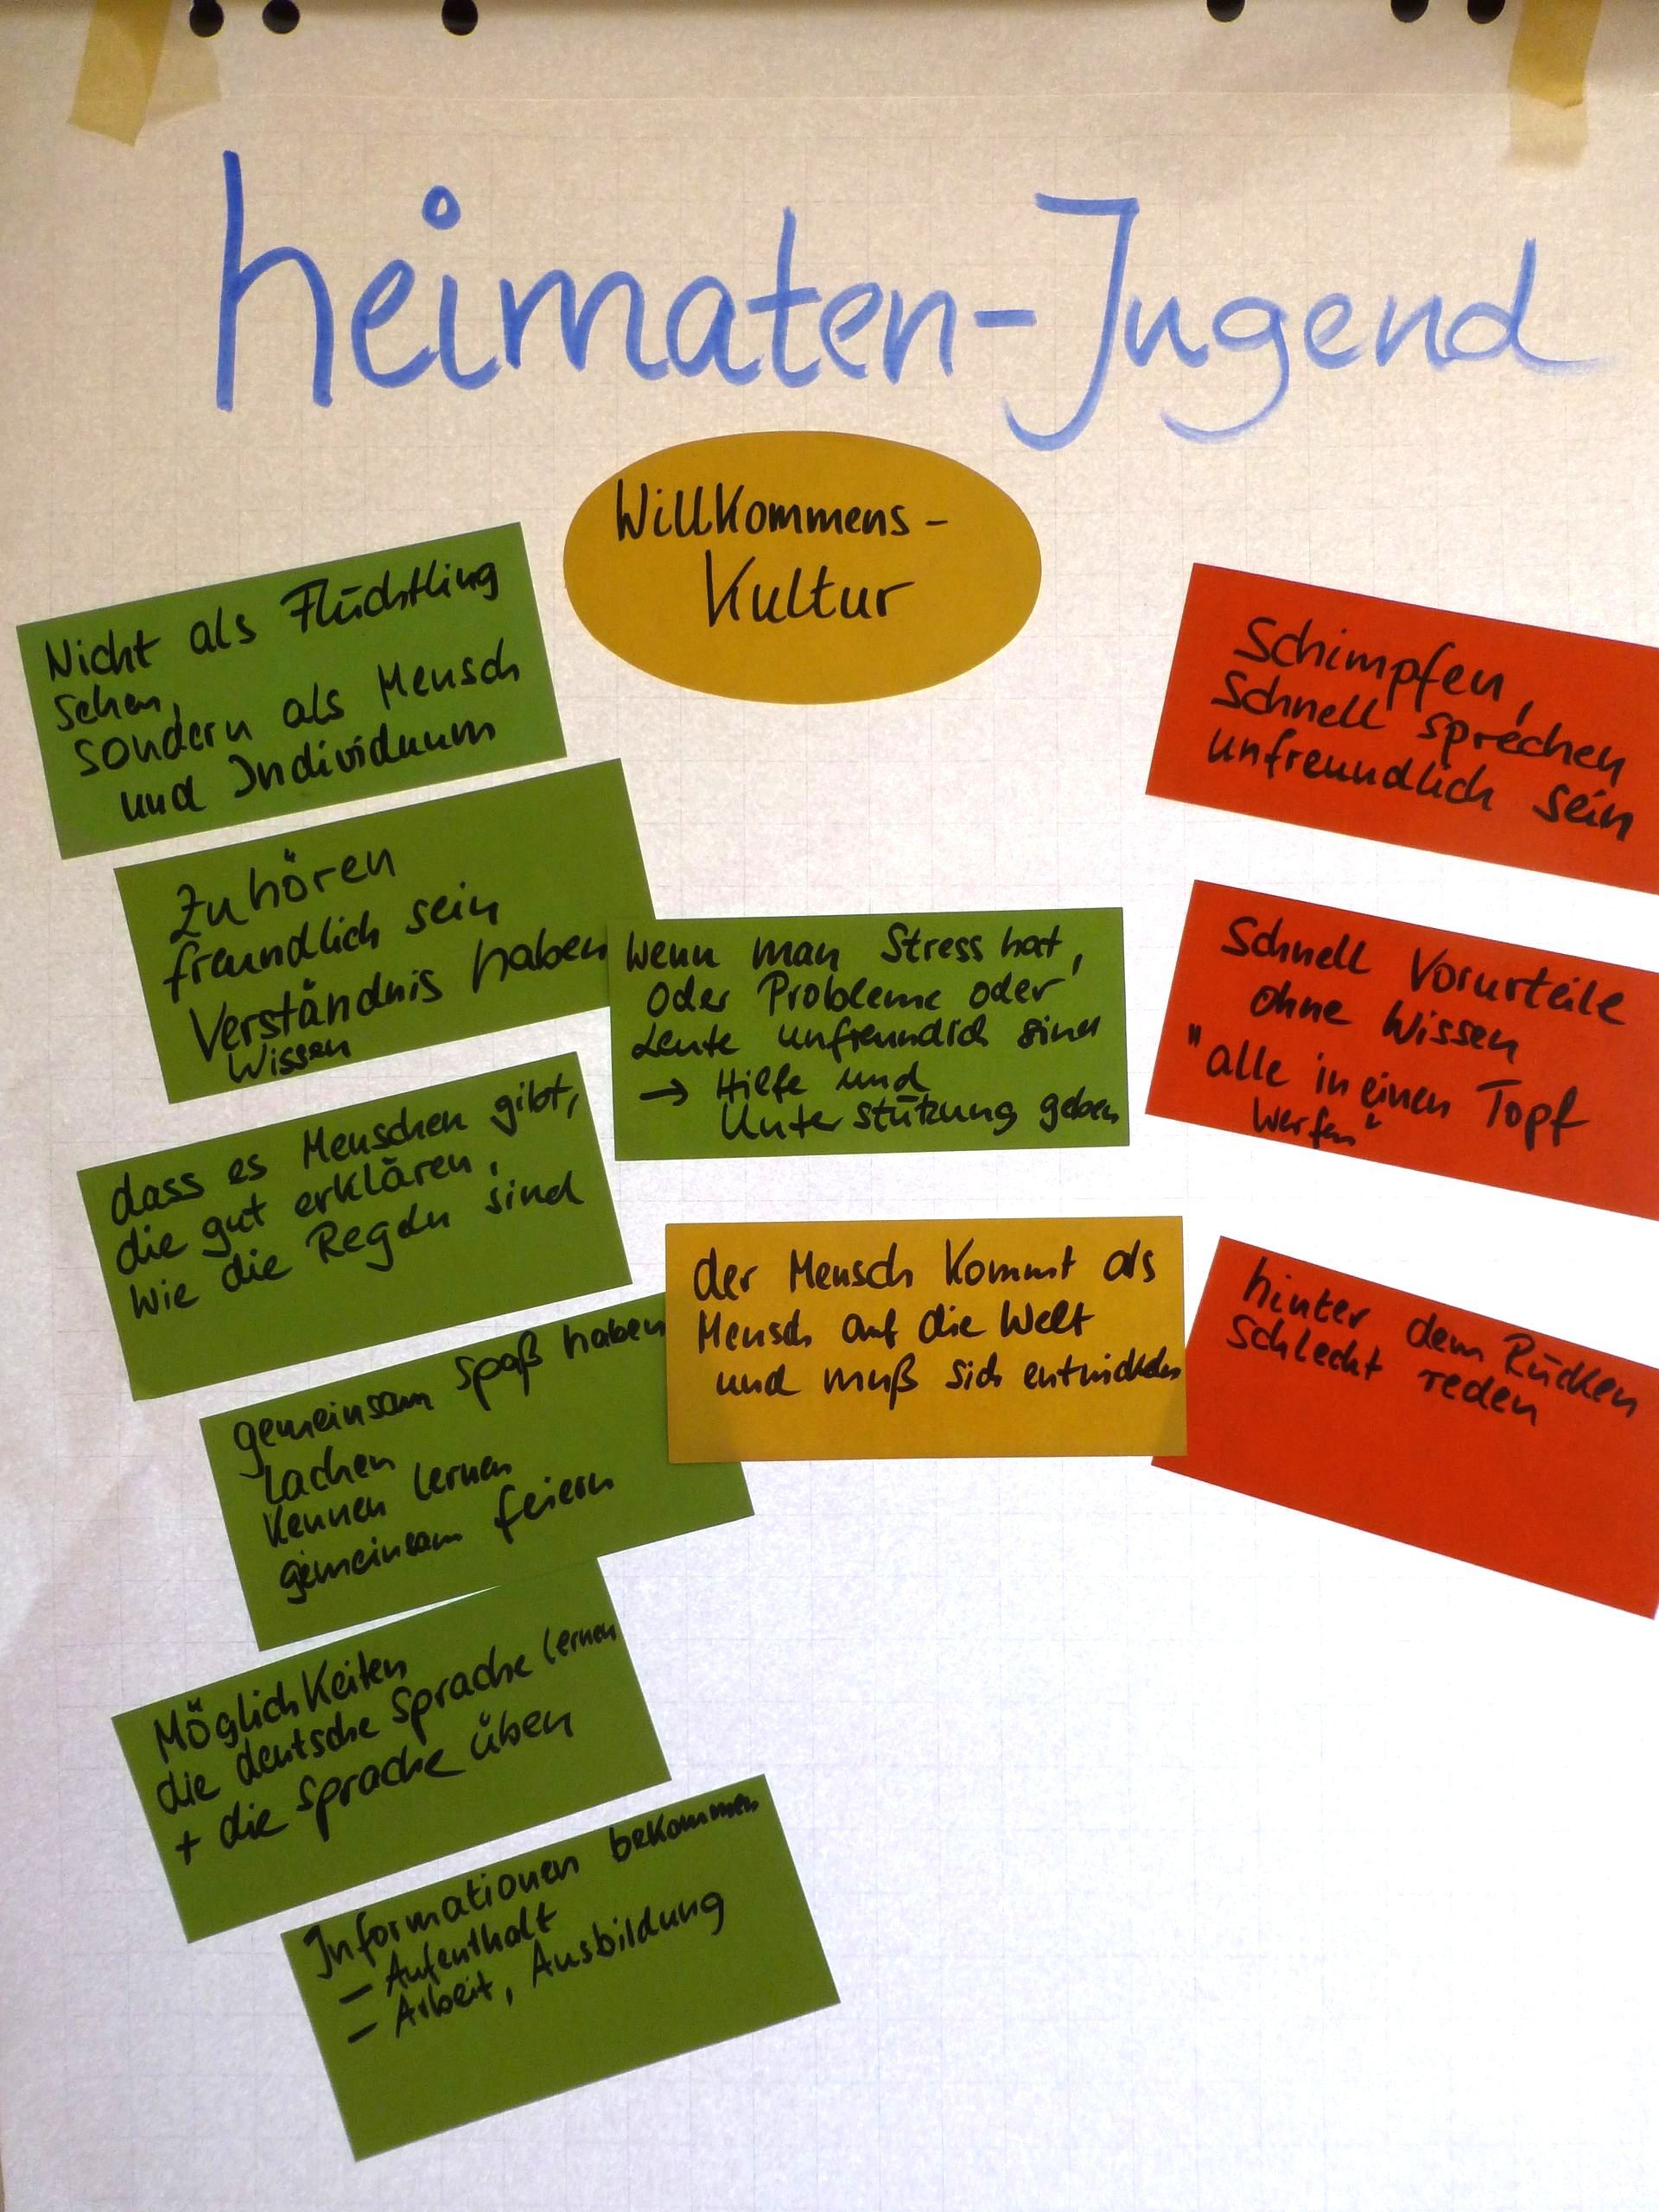 heimaten-Jugend
Willkommens-
Kultur
Nicht als Flüchtling
sehen,
sondern als Mensch
und Individuum
Zuhören
freundlich sein
Verständnis haben
Wissen
dass es Menschen gibt,
die gut erklären,
wie die Regeln sind
gemeinsam Spaß haben
lachen
kennen lernen
gemeinsam feiern
Möglichkeiten
die deutsche Sprache lernen
+ die Sprache üben
Informationen bekommen
- Aufenthalt
- Arbeit, Ausbildung
Wenn man Stress hat,
oder Probleme oder
Leute unfreundlich sind
→ Hilfe und
Unterstützung geben
der Mensch kommt als
Mensch auf die Welt
und muß sich entwickeln
Schimpfen,
schnell sprechen
unfreundlich sein
Schnell Vorurteile
ohne Wissen
"alle in einen Topf
werfen"
hinter dem Rücken
schlecht reden